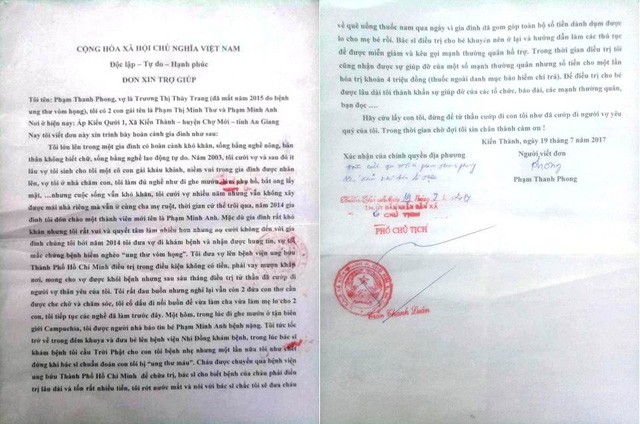 CỘNG HÒA XÃ HỘI CHỦ NGHĨA VIỆT NAM
Độc lập – Tự do – Hạnh phúc
ĐƠN XIN TRỢ GIÚP
Tôi tên: Phạm Thanh Phong, vợ là Trương Thị Thùy Trang (đã mất năm 2015 do bệnh
ung thư vòm họng), tôi có 2 con gái tên là Phạm Thị Minh Thư và Phạm Minh Anh
Nơi ở hiện nay: Ấp Kiến Qưới 1, Xã Kiến Thành – huyện Chợ Mới – tỉnh An Giang
Nay tôi viết đơn này xin trình bày hoàn cảnh gia đình như sau:
Tôi lớn lên trong một gia đình có hoàn cảnh khó khăn, sống bằng nghề nông, bản
thân không biết chữ, sống bằng nghề lao động tự do. Năm 2003, tôi cưới vợ và sau đó ít
lâu vợ tôi sinh cho tôi một cô con gái kháu khỉnh, niềm vui trong gia đình được nhân
lên, vợ tôi ở nhà chăm con, tôi làm đủ nghề như đi ghe mướn, làm phụ hồ, bắt ong lấy
mật, ...nhưng cuộc sống vẫn khó khăn, tôi cưới vợ nhiều năm nhưng vẫn không xây
được mái nhà riêng mà vẫn ở cùng cha mẹ ruột, thời gian cứ thế trôi qua, năm 2014 gia
đình tôi đến chào một thành viên mới tên là Phạm Minh Anh. Mặc dù gia đình rất khó
khăn nhưng tôi rất vui và quyết tâm làm nhiều hơn nhưng nụ cười không đến với gia
đình chúng tôi bởi năm 2014 tôi đưa vợ đi khám bệnh và nhận được hung tin, vợ tôi
mắc chứng bệnh hiểm nghèo "ung thư vòm họng". Tôi đưa vợ lên bệnh viện ung bướu
Thành Phố Hồ Chí Minh điều trị trong điều kiện không có tiền, phải vay mượn khắp
nơi, mong cho vợ được khỏi bệnh nhưng sau sáu tháng điều trị tử thần đã cướp đi
người vợ thân yêu của tôi. Tôi rất đau buồn nhưng nghĩ lại vẫn còn 2 đứa con thơ cần
được che chở và chăm sóc, tôi cố dấu đi nỗi buồn để vừa làm cha vừa làm mẹ lo cho 2
con, tôi tiếp tục các nghề đã làm trước đây. Một hôm, trong lúc đi ghe mướn ở tận biên
giới Campuchia, tôi được người nhà báo tin bé Phạm Minh Anh bệnh nặng. Tôi tức tốc
trở về trong đêm khuya và đưa bé lên bệnh viện Nhi Đồng khám bệnh, trong lúc bác sĩ
khám bệnh tôi cầu Trời Phật cho con tôi bệnh nhẹ nhưng một lần nữa tôi như chết
đứng khi bác sĩ chuẩn đoán con tôi bị "ung thư máu". Cháu được chuyển qua bệnh viện
ung bứu Thành Phố Hồ Chí Minh để chữa trị, bác sĩ cho biết bệnh của cháu phải điều
trị lâu dài và tốn rất nhiều tiền, tôi rớt nước mắt và nói với bác sĩ chắc tôi sẽ đưa cháu
về quê uống thuốc nam qua ngày vì gia đình đã gom góp toàn bộ số tiền dành dụm được
lo cho mẹ bé rồi. Bác sĩ điều trị cho bé khuyên nên ở lại và hướng dẫn làm các thủ tục
để được miễn giảm và kêu gọi mạnh thường quân hỗ trợ. Trong thời gian điều trị tôi
cũng nhận được sự giúp đỡ của một số mạnh thường quân nhưng số tiền cho một lần
hóa trị khoản 4 triệu đồng (thuốc ngoài danh mục bảo hiểm chi trả). Để điều trị cho bé
được lâu dài tôi thành khẩn vụ giúp đỡ của các tổ chức, báo đài, các mạnh thường quân,
bạn đọc ....
Hãy cứu lấy con tôi, đừng để tử thần cướp đi con tôi như đã cướp đi người vợ yêu
quý của tôi. Trong thời gian chờ đợi tôi xin chân thành cảm ơn !
Kiến Thành, ngày 19 tháng 7 năm 2017
Xác nhận của chính quyền địa phương
Người viết đơn
Phong
Phạm Thanh Phong
TM. ỦY BAN NHÂN DÂN XÃ
CHỦ TỊCH
PHÓ CHỦ TỊCH
Trần Thành Luân